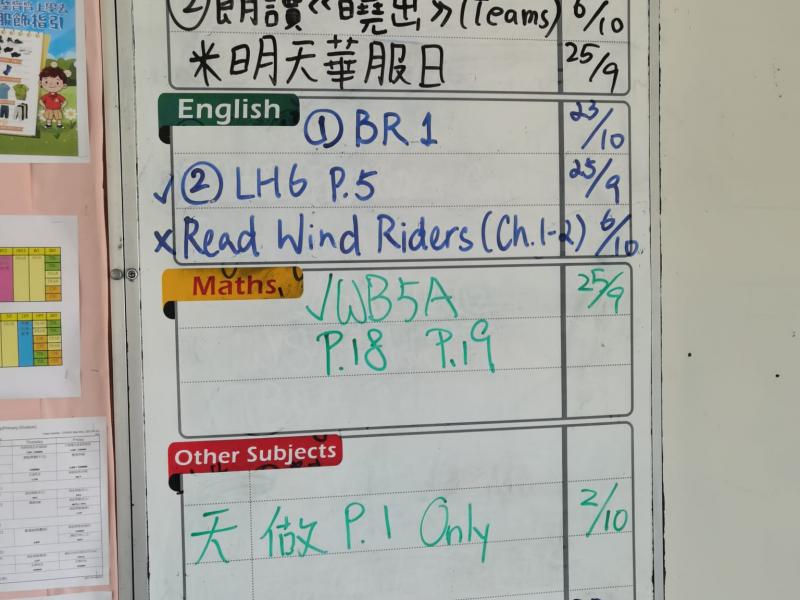 ② 朗讀《曉出》(Teams) 6/10
米明天華服日 25/9
English
① BR 1 23/10
✓② LH6 P.5 25/9
x Read Wind Riders (Ch.1-2) 6/10
Maths
✓WB5A 25/9
P.18 P.19
Other Subjects
天 做 P.1 Only 2/10